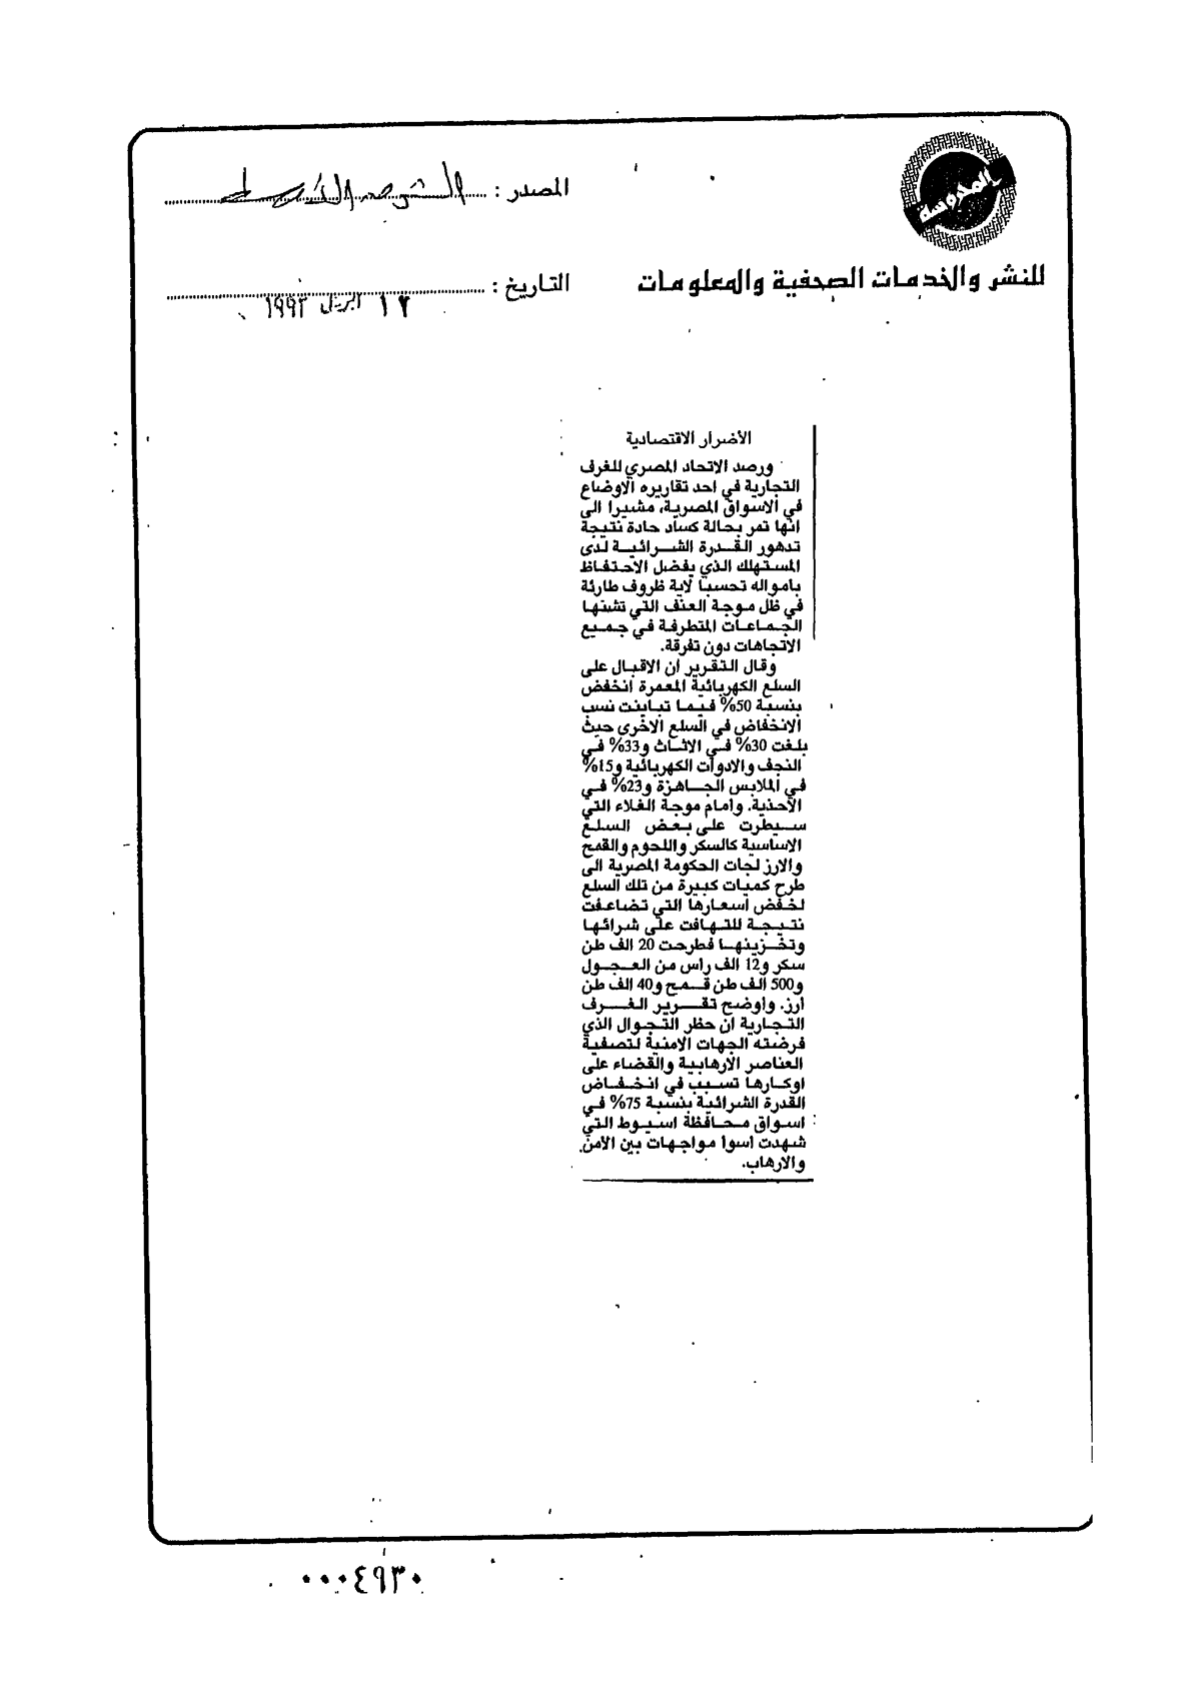 المحروسة
المصدر : الشرق الأوسط
للنشر والخدمات الصحفية والمعلومات
التاريخ : ١٢ ابريل ١٩٩٣
الأضرار الاقتصادية
ورصد الاتحاد المصري للغرف
التجارية في احد تقاريره الاوضاع
في الاسواق المصرية، مشيرا الى
انها تمر بحالة كساد حادة نتيجة
تدهور القدرة الشرائية لدى
المستهلك الذي يفضل الاحتفاظ
بامواله تحسبا لاية ظروف طارئة
في ظل موجة العنف التي تشنها
الجماعات المتطرفة في جميع
الاتجاهات دون تفرقة.
وقال التقرير ان الاقبال على
السلع الكهربائية المعمرة انخفض
بنسبة 50% فيما تباينت نسب
الانخفاض في السلع الاخرى حيث
بلغت 30% في الاثاث و33% في
النجف والادوات الكهربائية و15%
في الملابس الجاهزة و23% في
الاحذية. وامام موجة الغلاء التي
سيطرت على بعض السلع
الاساسية كالسكر واللحوم والقمح
والارز لجات الحكومة المصرية الى
طرح كميات كبيرة من تلك السلع
لخفض اسعارها التي تضاعفت
نتيجة للتهافت على شرائها
وتخزينها فطرحت 20 الف طن
سكر و12 الف راس من العجول
و500 الف طن قمح و40 الف طن
ارز. واوضح تقرير الغرف
التجارية ان حظر التجوال الذي
فرضته الجهات الامنية لتصفية
العناصر الارهابية والقضاء على
اوكارها تسبب في انخفاض
القدرة الشرائية بنسبة 75% في
اسواق محافظة اسيوط التي
شهدت اسوا مواجهات بين الامن
والارهاب.
٠٠٠٤٩٣٠